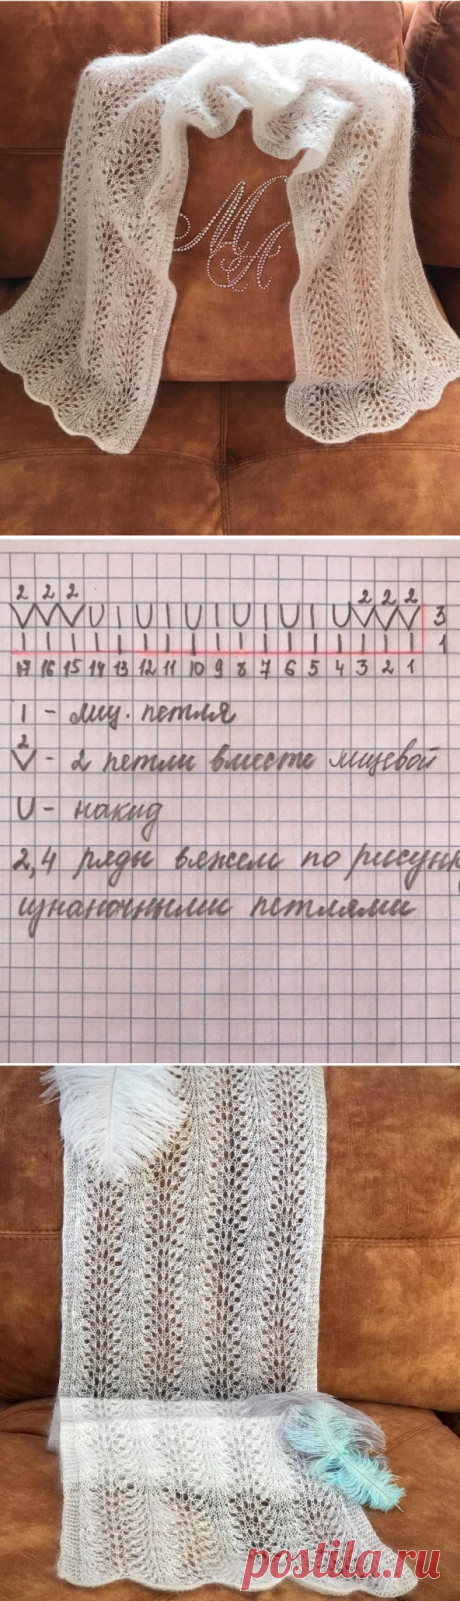 МА
2 2 2 2 2 2
V V V U I U I U I U I U I U V V V 3
I I I I I I I I I I I I I I I I I 1
17 16 15 14 13 12 11 10 9 8 7 6 5 4 3 2 1
I - лиц. петля
2
V - 2 петли вместе лицевой
U - накид
2,4 ряды вяжем по рисунку
изнаночными петлями
postila.ru